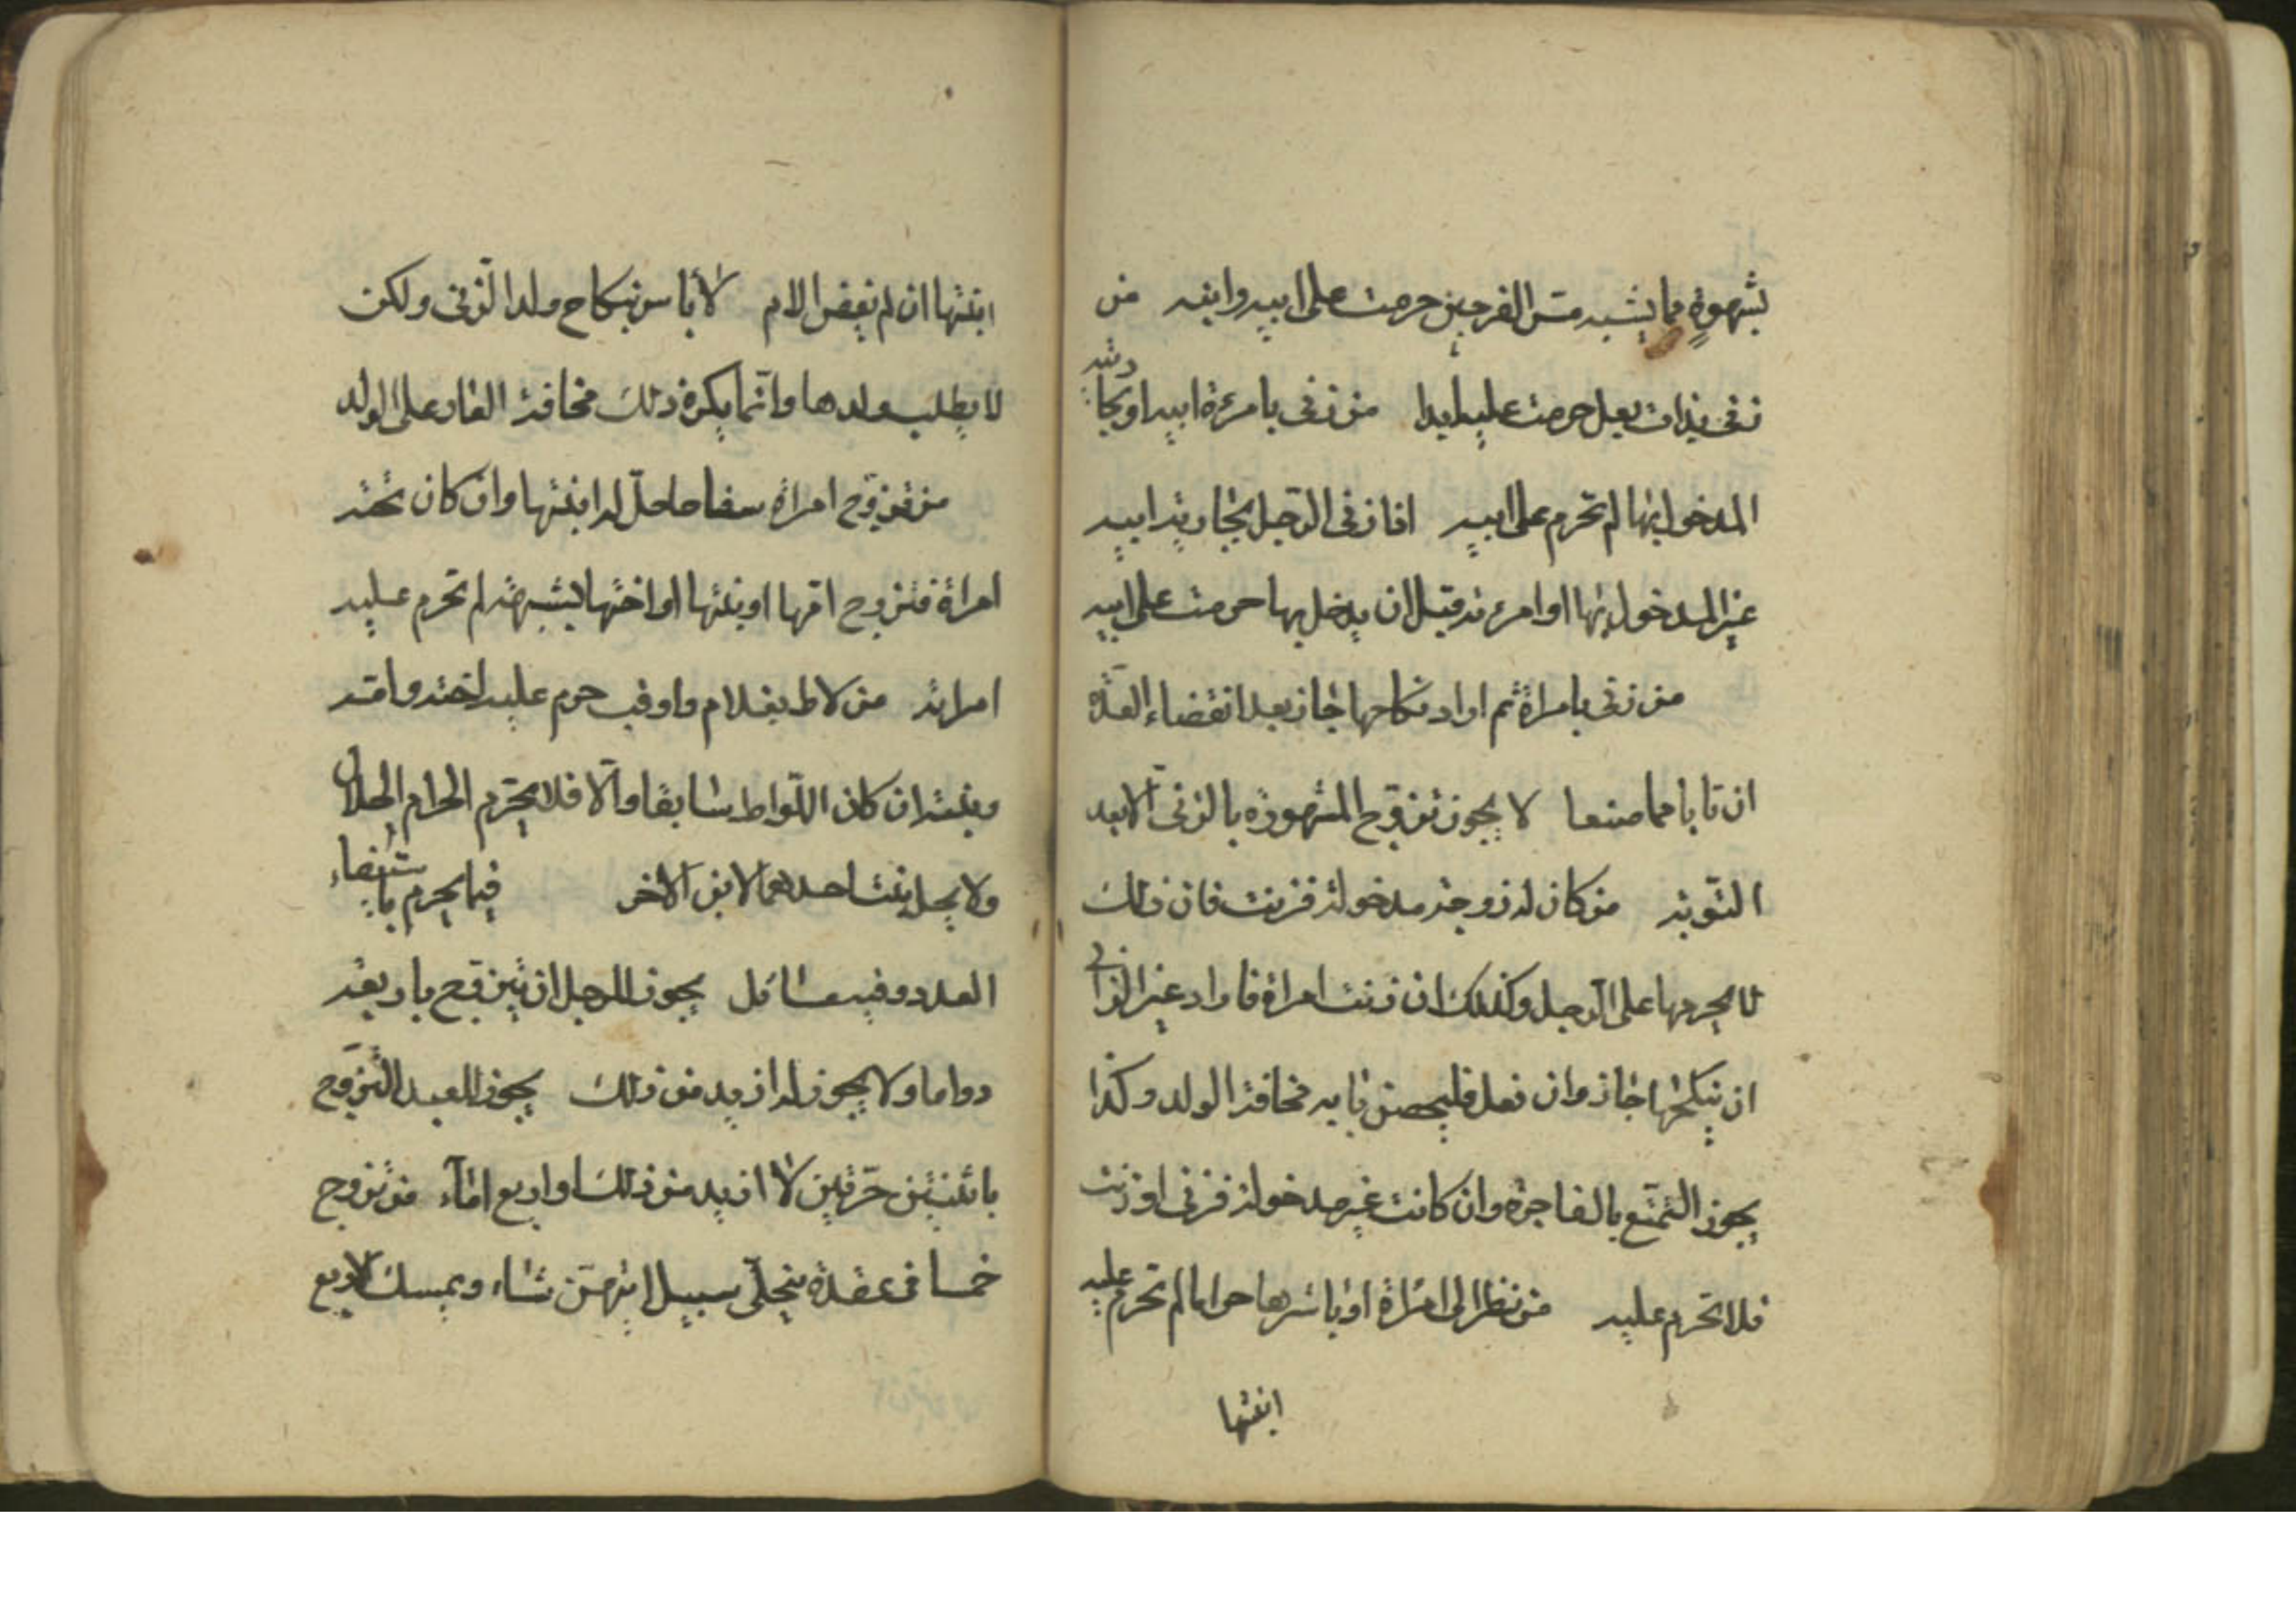 بشهوةٍ مما يشبه مسّ الفرجين حرمت على ابيه وابنه من
زنى بذات بعل حرمت عليه ابدا من زنى بامرءة ابيه او بجاريته
المدخول بها لم تحرم على ابيه اذا زنى الرّجل بجارية ابيه
غير المدخول بها او امرءته قبل ان يدخل بها حرمت على ابيه
من زنى بامراة ثم اراد نكاحها جاز بعد انقضاء العدّة
ان تابا مما صنعا لا يجوز تزوّج المشهورة بالزنى الّا بعد
التّوبة من كان له زوجة مدخولة فزنت فان ذلك
لا يحرمها على الرّجل وكذلك ان زنت امراة فاراد غير الزانى
ان ينكحها جاز وان فعل فليحصن بابه مخافة الولد وكذا
يجوز التمتّع بالفاجرة وان كانت غير مدخولة فزنى او زنت
فلا تحرم عليه من نظر الى امراة او باشرها حراما لم تحرم عليه
ابنتها
ابنتها ان لم يفض الى الام لا باس بنكاح ولد الزّنى ولكن
لا يطلب ولدها وانّما يكره ذلك مخافة العار على الولد
من تزوّج امراة سفاحا حلّ له ابنتها وان كان تحته
امراة فتزوج امّها او بنتها او اختها بشبهة لم تحرم عليه
امراته من لاط بغلام فاوقب حرم عليه اخته وامّه
وبنته ان كان اللّواط سابقا والّا فلا يحرّم الحرام الحلال
ولا يحل بنت احدهما لابن الاخر فيما يحرم باستيفاء
العدد وفيه مسائل يجوز للرجل ان يتزوّج باربعة
دواما ولا يجوز له ازيد من ذلك يجوز للعبد التّزوّج
باثنتين حرّتين لا ازيد من ذلك او اربع امآء من تزوج
خمسا فى عقدة يخلّى سبيل ايتهنّ شاء ويمسك الاربع